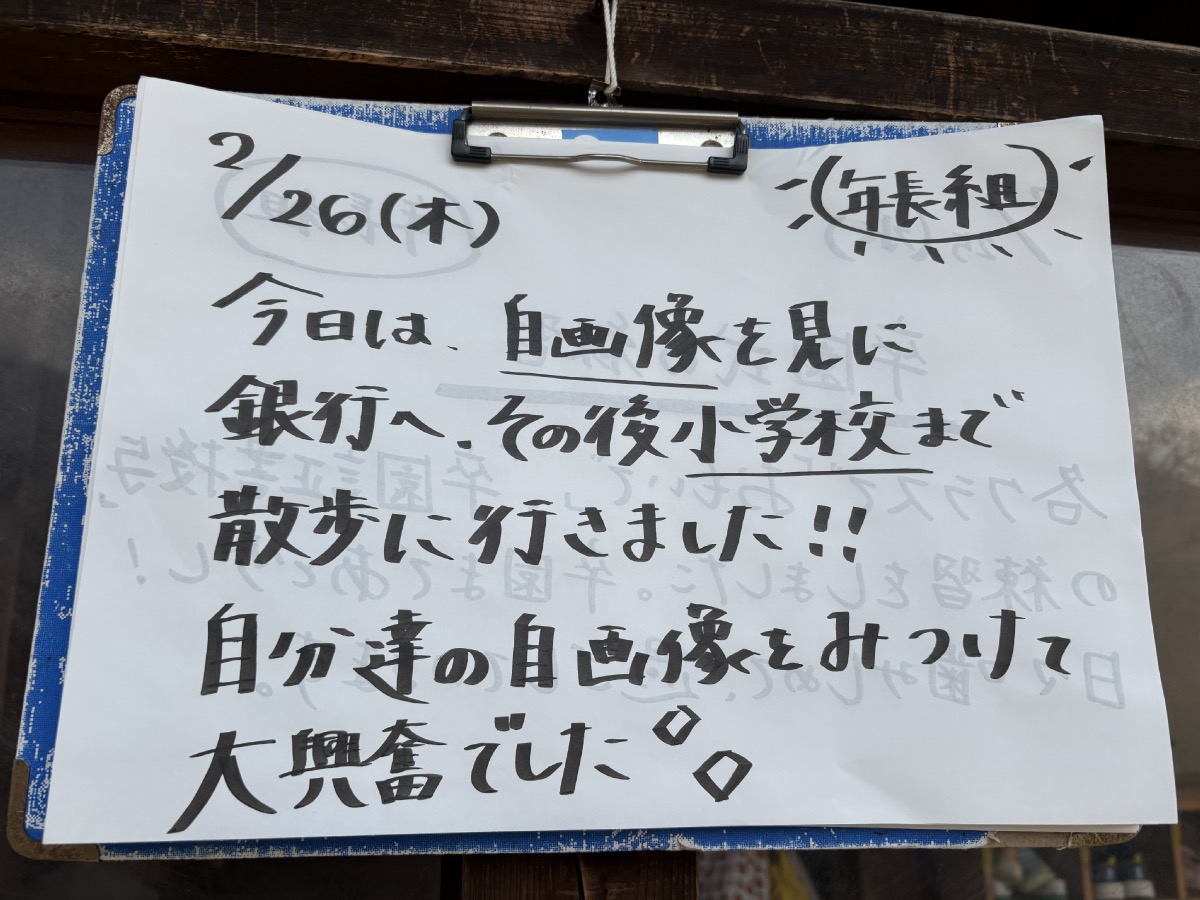 2/26(木)
年長組
今日は、自画像を見に
銀行へ、その後小学校まで
散歩に行きました!!
自分達の自画像をみつけて
大興奮でした